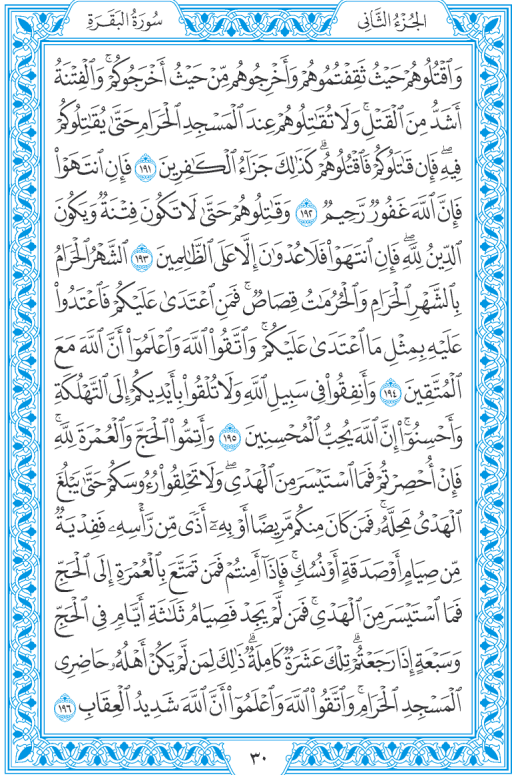 الجُزْءُ الثَّانِي
سُورَةُ البَقَرَةِ
وَٱقْتُلُوهُمْ حَيْثُ ثَقِفْتُمُوهُمْ وَأَخْرِجُوهُم مِّنْ حَيْثُ أَخْرَجُوكُمْۚ وَٱلْفِتْنَةُ
أَشَدُّ مِنَ ٱلْقَتْلِۚ وَلَا تُقَـٰتِلُوهُمْ عِندَ ٱلْمَسْجِدِ ٱلْحَرَامِ حَتَّىٰ يُقَـٰتِلُوكُمْ
فِيهِۖ فَإِن قَـٰتَلُوكُمْ فَٱقْتُلُوهُمْۗ كَذَٰلِكَ جَزَآءُ ٱلْكَـٰفِرِينَ ١٩١ فَإِنِ ٱنتَهَوْا۟
فَإِنَّ ٱللَّهَ غَفُورٌ رَّحِيمٌ ١٩٢ وَقَـٰتِلُوهُمْ حَتَّىٰ لَا تَكُونَ فِتْنَةٌ وَيَكُونَ
ٱلدِّينُ لِلَّهِۖ فَإِنِ ٱنتَهَوْا۟ فَلَا عُدْوَٰنَ إِلَّا عَلَى ٱلظَّـٰلِمِينَ ١٩٣ ٱلشَّهْرُ ٱلْحَرَامُ
بِٱلشَّهْرِ ٱلْحَرَامِ وَٱلْحُرُمَـٰتُ قِصَاصٌۚ فَمَنِ ٱعْتَدَىٰ عَلَيْكُمْ فَٱعْتَدُوا۟
عَلَيْهِ بِمِثْلِ مَا ٱعْتَدَىٰ عَلَيْكُمْۚ وَٱتَّقُوا۟ ٱللَّهَ وَٱعْلَمُوٓا۟ أَنَّ ٱللَّهَ مَعَ
ٱلْمُتَّقِينَ ١٩٤ وَأَنفِقُوا۟ فِى سَبِيلِ ٱللَّهِ وَلَا تُلْقُوا۟ بِأَيْدِيكُمْ إِلَى ٱلتَّهْلُكَةِ
وَأَحْسِنُوٓا۟ۚ إِنَّ ٱللَّهَ يُحِبُّ ٱلْمُحْسِنِينَ ١٩٥ وَأَتِمُّوا۟ ٱلْحَجَّ وَٱلْعُمْرَةَ لِلَّهِۚ
فَإِنْ أُحْصِرْتُمْ فَمَا ٱسْتَيْسَرَ مِنَ ٱلْهَدْىِۖ وَلَا تَحْلِقُوا۟ رُءُوسَكُمْ حَتَّىٰ يَبْلُغَ
ٱلْهَدْىُ مَحِلَّهُۥۚ فَمَن كَانَ مِنكُم مَّرِيضًا أَوْ بِهِۦٓ أَذًى مِّن رَّأْسِهِۦ فَفِدْيَةٌ
مِّن صِيَامٍ أَوْ صَدَقَةٍ أَوْ نُسُكٍۚ فَإِذَآ أَمِنتُمْ فَمَن تَمَتَّعَ بِٱلْعُمْرَةِ إِلَى ٱلْحَجِّ
فَمَا ٱسْتَيْسَرَ مِنَ ٱلْهَدْىِۚ فَمَن لَّمْ يَجِدْ فَصِيَامُ ثَلَـٰثَةِ أَيَّامٍ فِى ٱلْحَجِّ
وَسَبْعَةٍ إِذَا رَجَعْتُمْۗ تِلْكَ عَشَرَةٌ كَامِلَةٌۗ ذَٰلِكَ لِمَن لَّمْ يَكُنْ أَهْلُهُۥ حَاضِرِى
ٱلْمَسْجِدِ ٱلْحَرَامِۚ وَٱتَّقُوا۟ ٱللَّهَ وَٱعْلَمُوٓا۟ أَنَّ ٱللَّهَ شَدِيدُ ٱلْعِقَابِ ١٩٦
٣٠